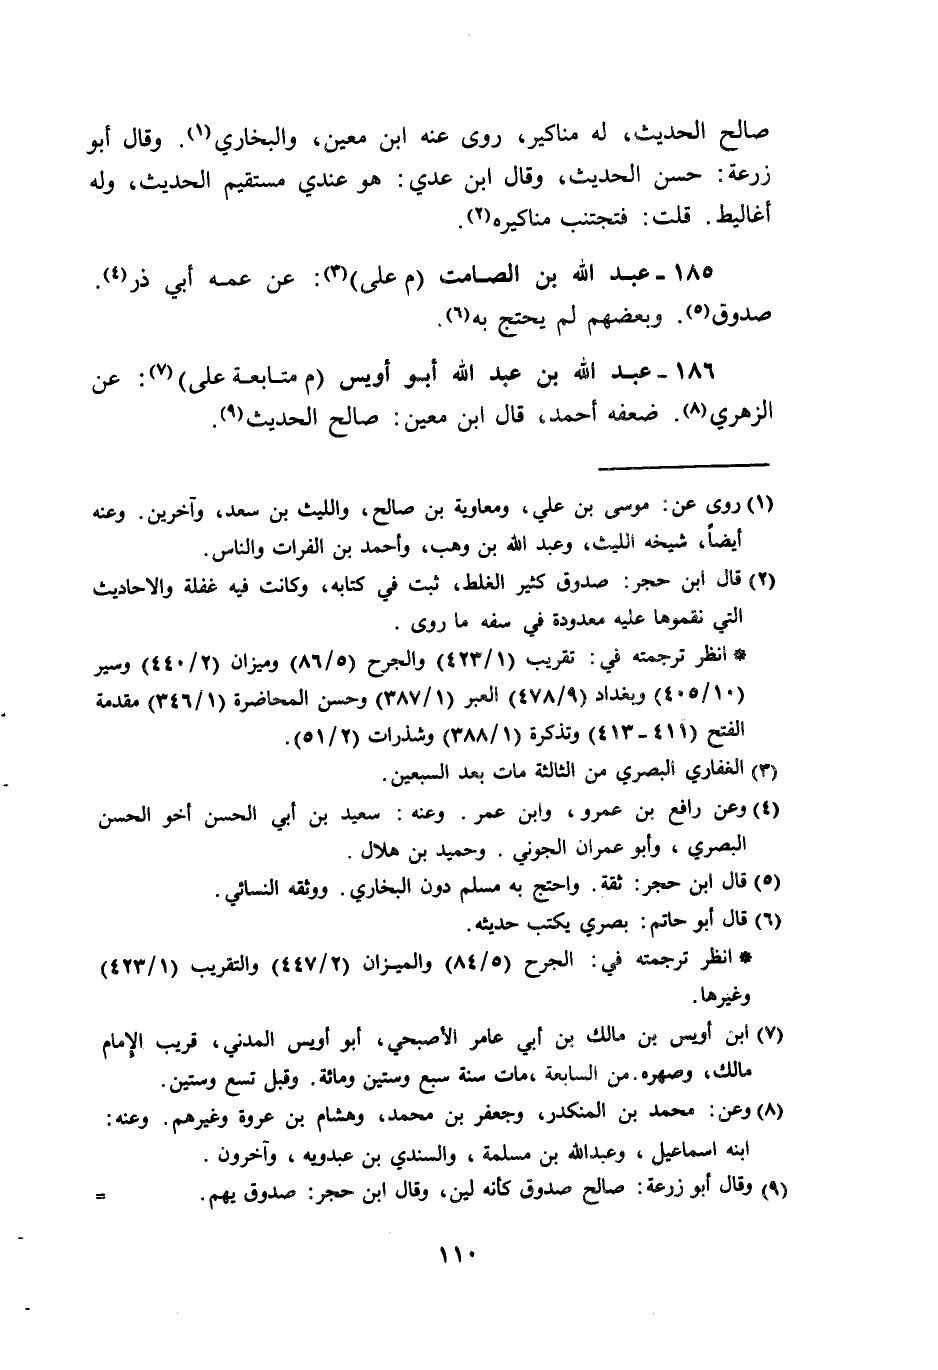 صالح الحديث، له مناكير، روى عنه ابن معين، والبخاري(١). وقال أبو
زرعة: حسن الحديث، وقال ابن عدي: هو عندي مستقيم الحديث، وله
أغاليط. قلت: فتجتنب مناكيره(٢).
١٨٥ - عبد الله بن الصامت (م على)(٣): عن عمه أبي ذر(٤).
صدوق(٥). وبعضهم لم يحتج به(٦).
١٨٦ - عبد الله بن عبد الله أبو أويس (م متابعة على)(٧): عن
الزهري(٨). ضعفه أحمد، قال ابن معين: صالح الحديث(٩).
(١) روى عن: موسى بن علي، ومعاوية بن صالح، والليث بن سعد، وآخرين. وعنه
أيضاً، شيخه الليث، وعبد الله بن وهب، وأحمد بن الفرات والناس.
(٢) قال ابن حجر: صدوق كثير الغلط، ثبت في كتابه، وكانت فيه غفلة والاحاديث
التي نقموها عليه معدودة في سفه ما روى .
* انظر ترجمته في: تقريب (٤٢٣/١) والجرح (٨٦/٥) وميزان (٤٤٠/٢) وسير
(٤٠٥/١٠) وبغداد (٤٧٨/٩) العبر (٣٨٧/١) وحسن المحاضرة (٣٤٦/١) مقدمة
الفتح (٤١١ - ٤١٣) وتذكرة (٣٨٨/١) وشذرات (٥١/٢).
(٣) الغفاري البصري من الثالثة مات بعد السبعين.
(٤) وعن رافع بن عمرو ، وابن عمر . وعنه : سعيد بن أبي الحسن أخو الحسن
البصري ، وأبو عمران الجوني . وحميد بن هلال .
(٥) قال ابن حجر: ثقة. واحتج به مسلم دون البخاري. ووثقه النسائي.
(٦) قال أبو حاتم: بصري يكتب حديثه.
* انظر ترجمته في: الجرح (٨٤/٥) والميزان (٤٤٧/٢) والتقريب (٤٢٣/١)
وغيرها.
(٧) ابن أويس بن مالك بن أبي عامر الأصبحي، أبو أويس المدني، قريب الإمام
مالك، وصهره. من السابعة ،مات سنة سبع وستين ومائة. وقبل تسع وستين.
(٨) وعن: محمد بن المنكدر، وجعفر بن محمد، وهشام بن عروة وغيرهم. وعنه:
ابنه اسماعيل ، وعبدالله بن مسلمة ، والسندي بن عبدويه ، وآخرون .
(٩) وقال أبو زرعة: صالح صدوق كأنه لين، وقال ابن حجر: صدوق يهم. =
١١٠